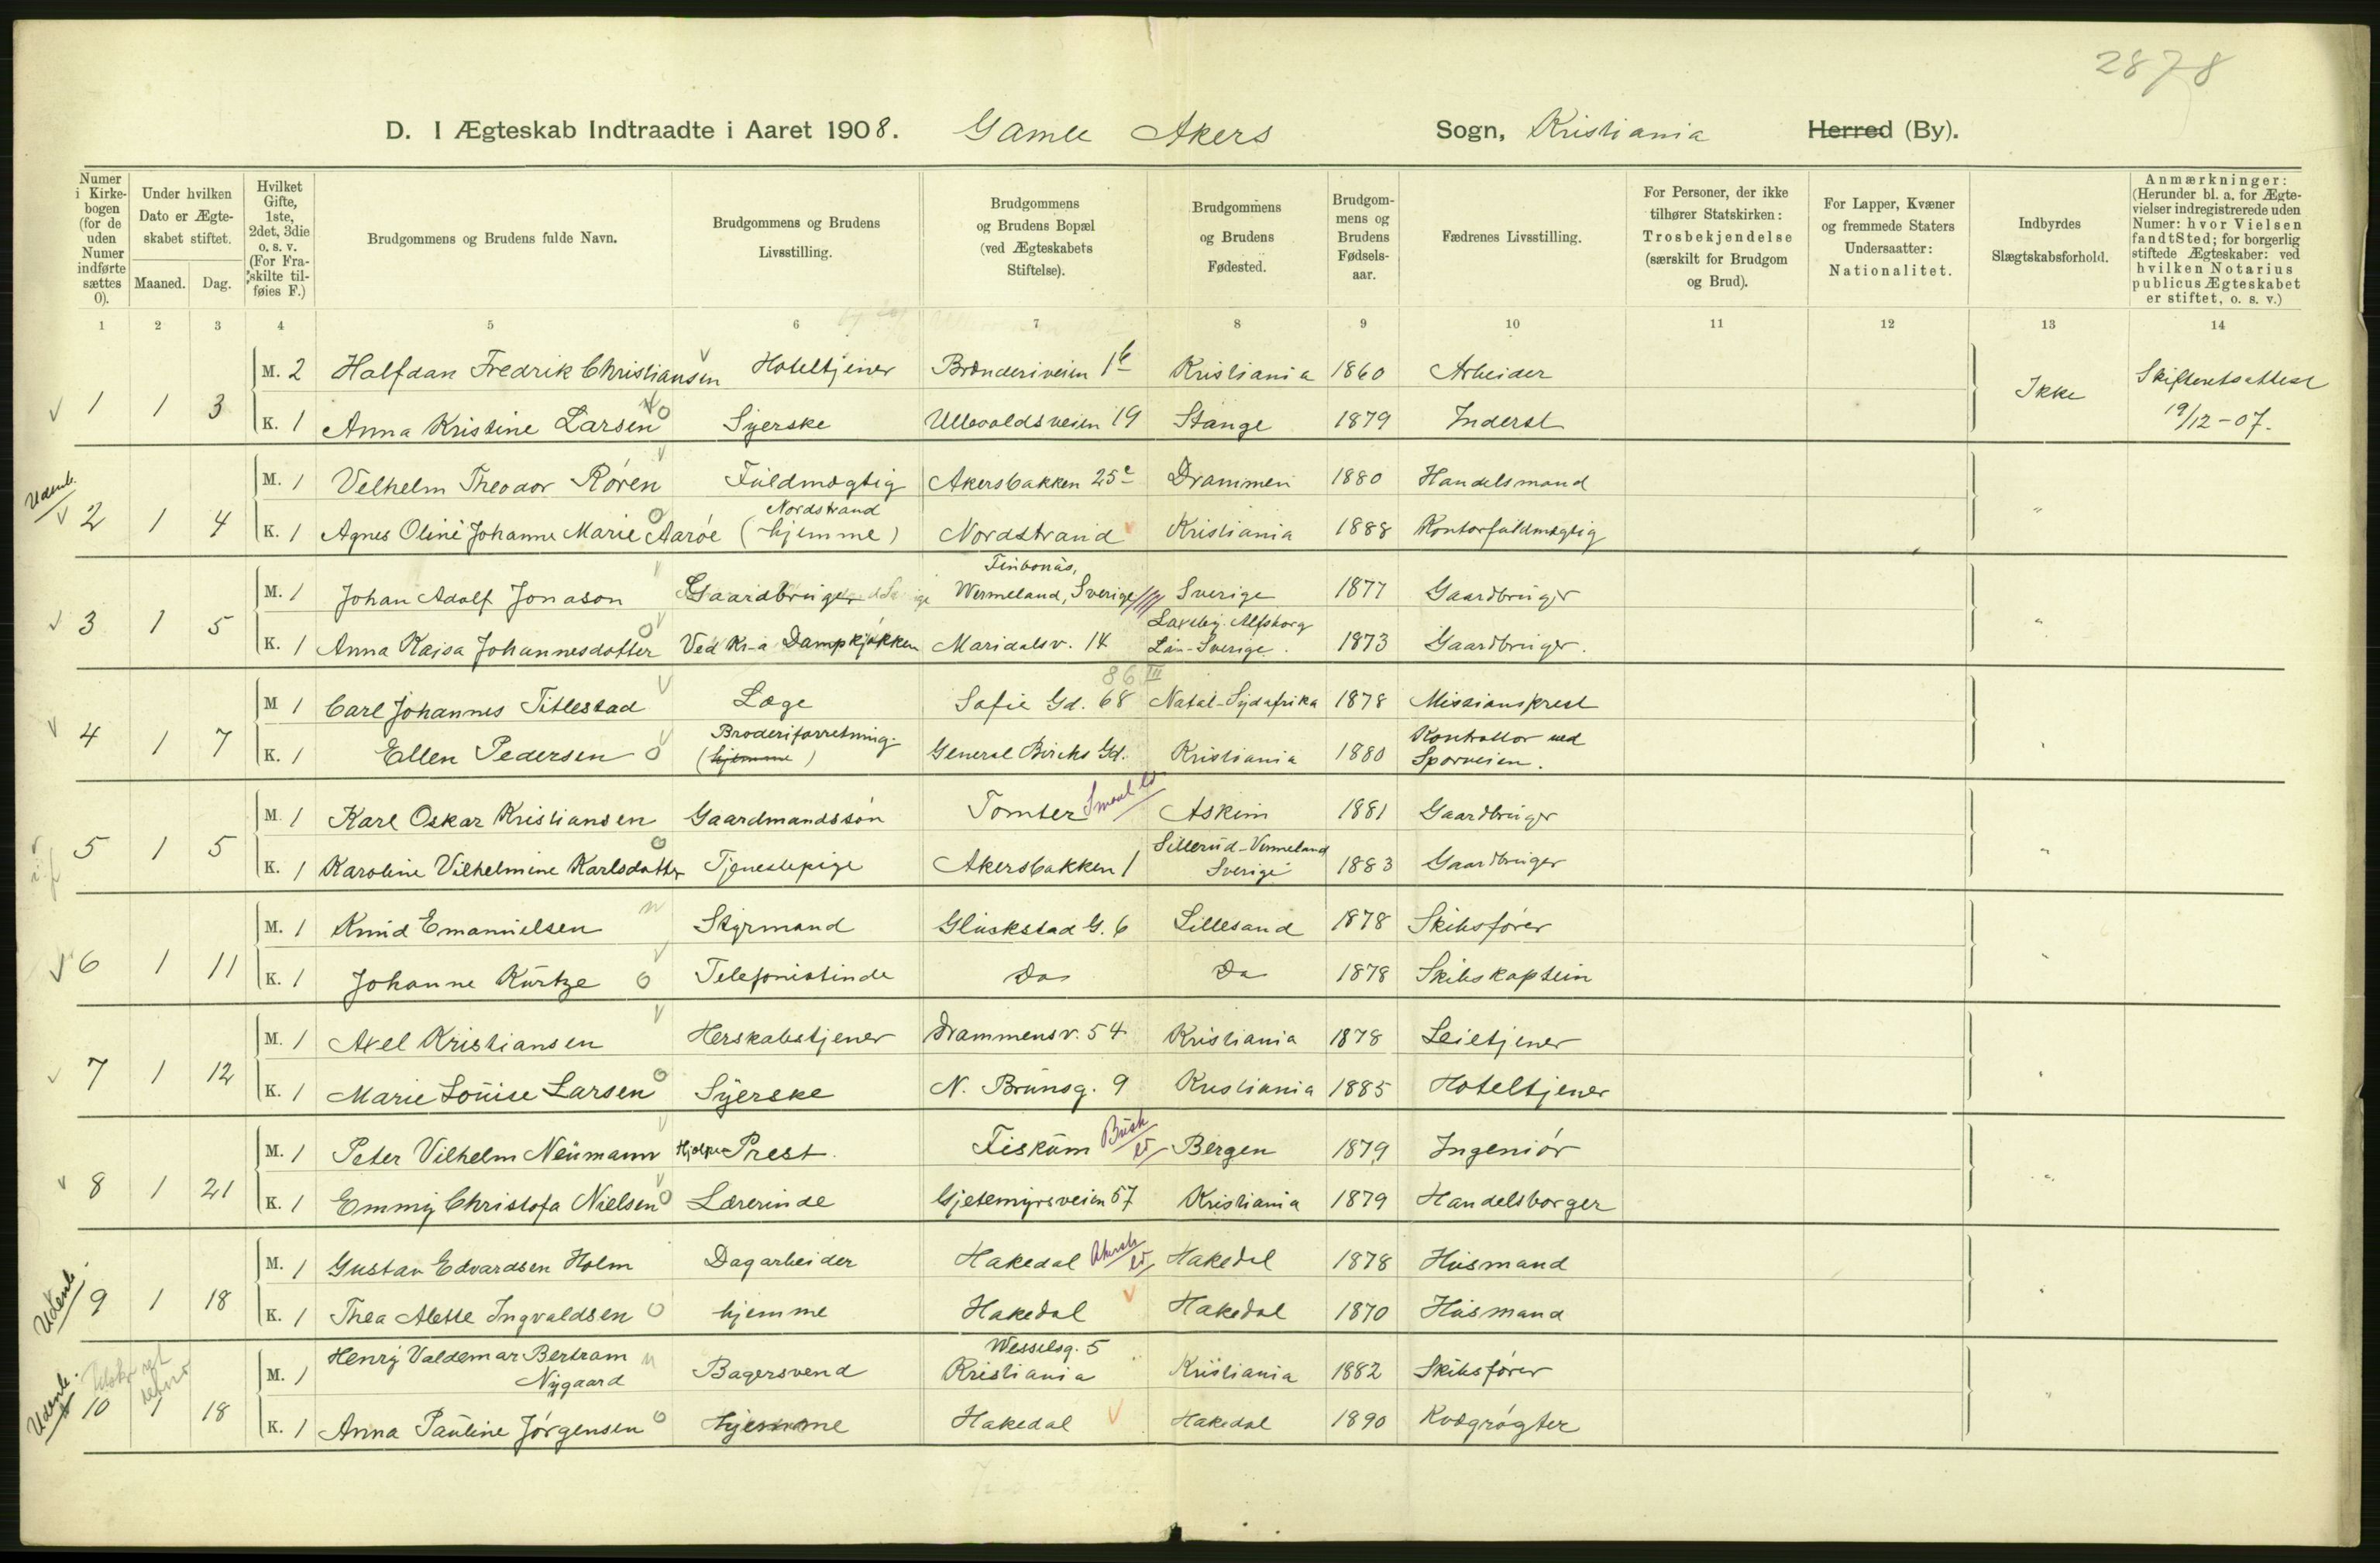 2878
D. I Ægteskab Indtraadte i Aaret 1908. Gamle Akers Sogn, Kristiania Herred (By).
Numer i Kirkebogen (for de uden Numer indførte sættes 0).
Under hvilken Dato er Ægteskabet stiftet.
Maaned. Dag.
Hvilket Gifte, 1ste, 2det, 3die o. s. v. (For Fraskilte tilføies F.)
Brudgommens og Brudens fulde Navn.
Brudgommens og Brudens Livsstilling.
Brudgommens og Brudens Bopæl (ved Ægteskabets Stiftelse).
Brudgommens og Brudens Fødested.
Brudgommens og Brudens Fødselsaar.
Fædrenes Livsstilling.
For Personer, der ikke tilhører Statskirken: Trosbekjendelse (særskilt for Brudgom og Brud).
For Lapper, Kvæner og fremmede Staters Undersaatter: Nationalitet.
Indbyrdes Slægtskabsforhold.
Anmærkninger: (Herunder bl. a. for Ægtevielser indregistrerede uden Numer: hvor Vielsen fandt Sted; for borgerlig stiftede Ægteskaber: ved hvilken Notarius publicus Ægteskabet er stiftet, o. s. v.)
1 2 3 4 5 6 7 8 9 10 11 12 13 14
1 1 3
M. 2 Halfdan Fredrik Christiansen Hoteltjener Brænderiveien 1b Kristiania 1860 Arbeider Ikke Skifteretsattest 19/12-07.
K. 1 Anna Kristine Larsen Syerske Ullevoldsveien 19 Stange 1879 Inderst
Udenb. 2 1 4
M. 1 Velhelm Theodor Røren Fuldmægtig Akersbakken 25c Drammen 1880 Handelsmand "
Nordstrand
K. 1 Agnes Oline Johanne Marie Aarøe (hjemme) Nordstrand Kristiania 1888 Kontorfuldmægtig
3 1 5
Finbonäs,
M. 1 Johan Adolf Jonason Gaardbruger Wermeland, Sverige Sverige 1877 Gaardbruger "
Laxeby. Alfsborg
K. 1 Anna Kaisa Johannesdotter Ved Kr-a Dampkjøkken Maridalsv. 14 Län-Sverige. 1873 Gaardbruger.
4 1 7
86 III
M 1 Carl Johannes Titlestad Læge Sofie Gd. 68 Natal-Sydafrika 1878 Missionsprest "
Broderiforretning. Kontrollør ved
K. 1 Ellen Pedersen (hjemme) General Birchs Gd. Kristiania 1880 Sporveien.
5 1 5
M. 1 Karl Oskar Kristiansen Gaardmandssøn Tomter Smaal. Askim 1881 Gaardbruger "
Sillerud-Vermeland
K. 1 Karoline Vilhelmine Karlsdatter Tjenestepige Akersbakken 1 Sverige 1883 Gaardbruger
6 1 11
M. 1 Knud Emanuelsen Styrmand Glückstad G. 6 Lillesand 1878 Skibsfører "
K. 1 Johanne Kürtze Telefonistinde Do Do 1878 Skibskaptein
7 1 12
M. 1 Axel Kristiansen Herskabstjener Drammensv. 54 Kristiania 1878 Leietjener "
K. 1 Marie Louise Larsen Syerske N. Brunsg. 9 Kristiania 1885 Hoteltjener
8 1 21
M. 1 Peter Vilhelm Neumann Hjælpe Prest. Fiskum Busk Bergen 1879 Ingeniør "
K. 1 Emmy Christofa Nielsen Lærerinde Gjetemyrsveien 57 Kristiania 1879 Handelsborger
Udenb. 9 1 18
M. 1 Gustav Edvardsen Holm Dagarbeider Hakedal Akersh Hakedal 1878 Husmand "
K. 1 Thea Alette Ingvaldsen hjemme Hakedal Hakedal 1870 Husmand
Udenb. 10 1 18
Henry Valdemar Bertram Wesselsg. 5
M. 1 Nygaard Bagersvend Kristiania Kristiania 1882 Skibsfører "
K. 1 Anna Pauline Jørgensen hjemme Hakedal Hakedal 1890 Kvægrøgter